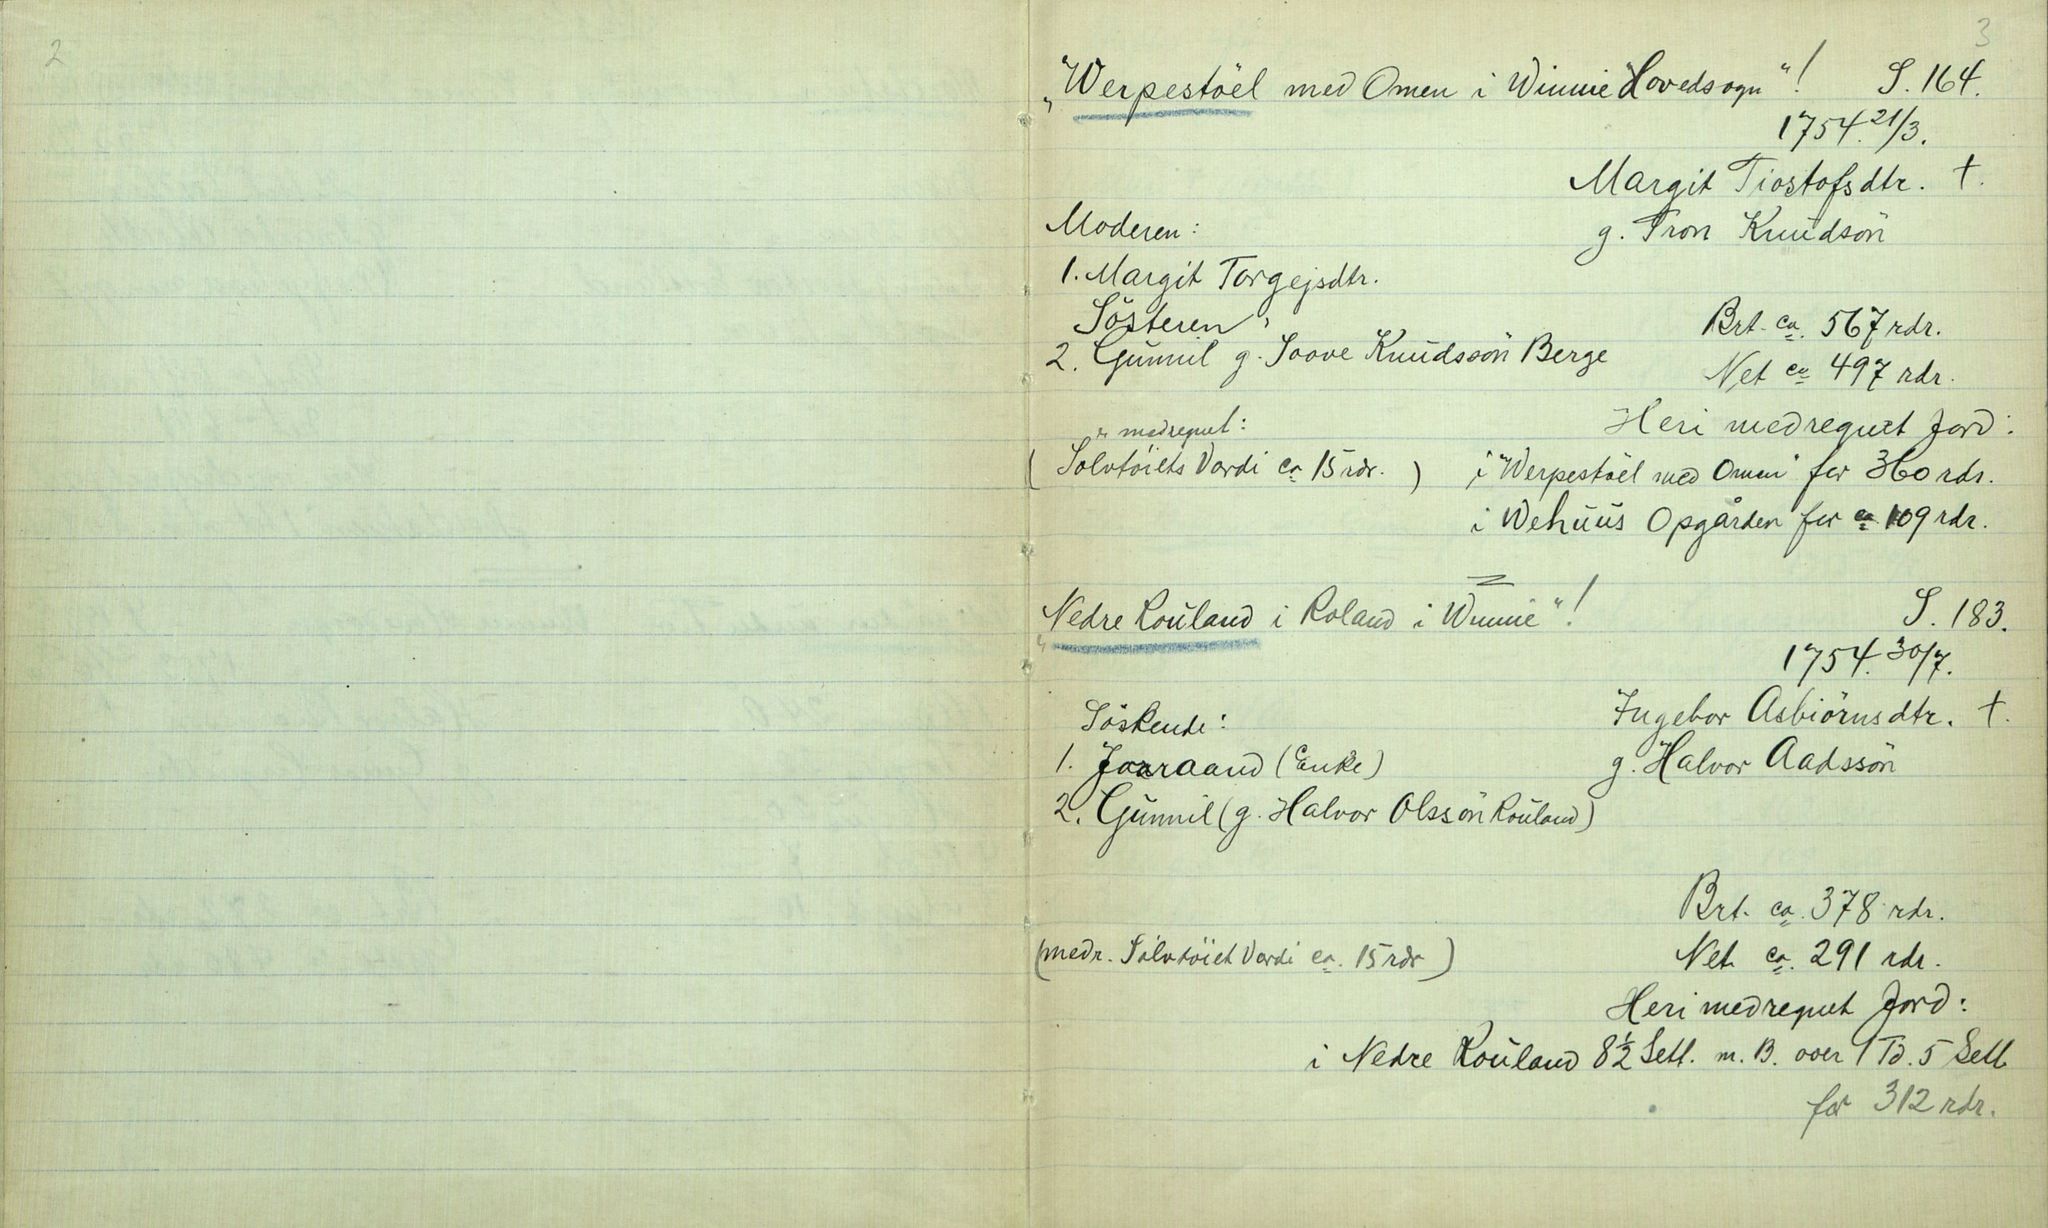 2
3
"Werpestöel med Omen i Winnie Hovedsogn"! S. 164.
1754. 21/3.
Margit Tiostofsdtr. †.
Moderen: g. Tron Knudsön
1. Margit Torgejsdtr.
Sösteren, Brt. ca. 567 rdr.
2. Gunnil g. Soove Knudssön Berge Net ca 497 rdr.
Heri medregnet Jord:
medregnet:
(Sølvtöiets Værdi ca 15 rdr.) i "Werpestöel med Omen" for 360 rdr.
i Wehuus Opgården for ca 109 rdr.
"Nedre Rouland i Roland i Winnie"! S. 183.
1754. 30/7.
Söskende: Ingebor Asbiörnsdtr. †.
1. Jorraand (Enke) g. Halvor Aadssön
2. Gunnil (g. Halvor Olssön Rouland)
Brt. ca. 378 rdr.
(medr. Sölvtöiet Værdi ca. 15 rdr) Net ca. 291 rdr.
Heri medregnet Jord:
i Nedre Rouland 8½ Setl. m. B. over 1 Td. 5 Setl
for 312 rdr.